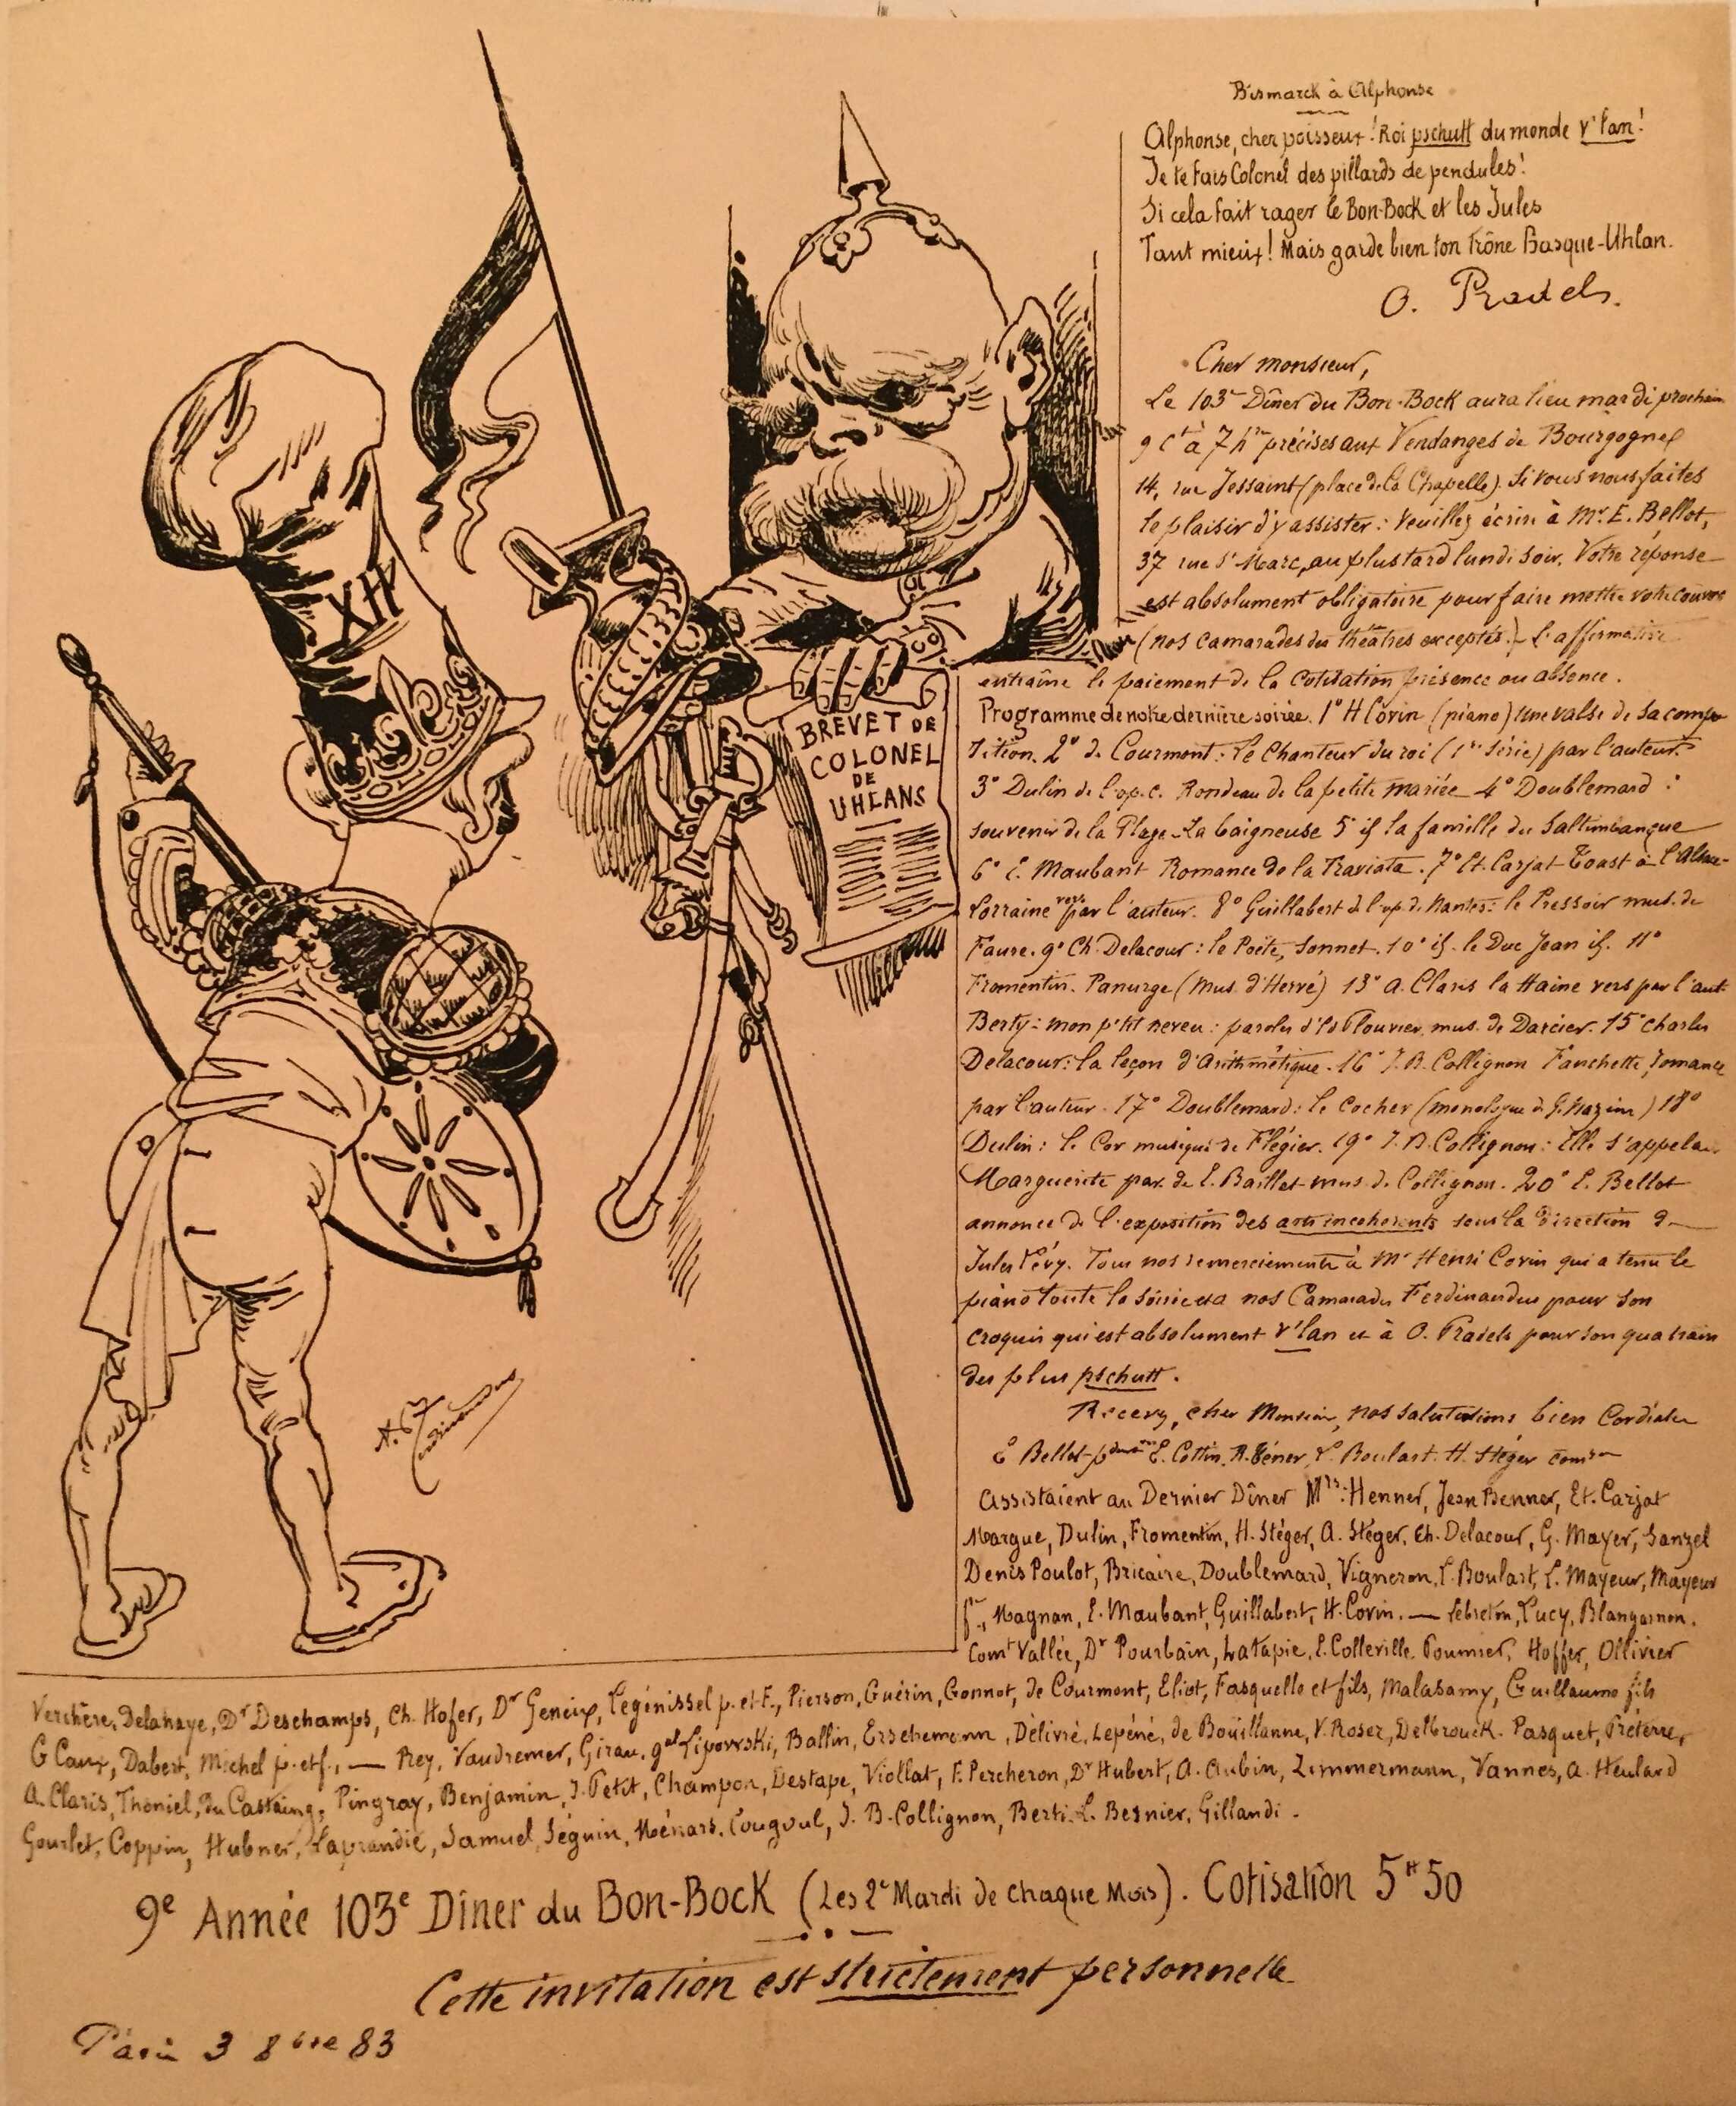 Bismarck à Alphonse
Alphonse, cher poisseux! Roi pschutt du monde v'lan!
Je te fais Colonel des pillards de pendules!
Si cela fait rager le Bon-Bock et les Jules
Tant mieux! Mais garde bien ton Trône Basque-Uhlan.
O. Pradels.
Cher monsieur,
Le 103e Dîner du Bon-Bock aura lieu mardi prochain
9 ct à 7 hres précises aux Vendanges de Bourgogne
14, rue Jessaint (place de la Chapelle). Si vous nous faites
le plaisir d'y assister: Veuillez écrire à Mr. E. Bellot,
37 rue St Marc, au plus tard lundi soir. Votre réponse
est absolument obligatoire pour faire mettre votre couvert
(nos camarades des théâtres exceptés.) L'affirmative
entraîne le paiement de la Cotisation présence ou absence.
Programme de notre dernière soirée. 1° H Corin (piano) une valse de sa compo
sition. 2° de Courmont: Le Chanteur du roi (1re série) par l'auteur.
3° Dulin de l'op. c. Rondeau de la petite mariée 4° Doublemard:
souvenir de la Plage - La baigneuse 5° if la famille du Saltimbanque
6° E. Maubant Romance de la Traviata. 7° Et. Carjat Toast à l'Alsace-
Lorraine vers par l'auteur. 8° Guillabert de l'op. de Nantes: le Pressoir mus. de
Faure. 9° Ch. Delacour: le Poète, Sonnet. 10° if. le Duc Jean if. 11°
Fromentin. Panurge (mus. d'Hervé) 13° A. Claris la Haine vers par l'aut.
Berty: mon p'tit neveu: paroles d'Ed Plouvier, mus. de Darcier. 15° Charles
Delacour: la leçon d'Arithmétique. 16° J. B. Collignon Fanchette, romance
par l'auteur. 17° Doublemard: le Cocher (monologue de G. Nazim) 18°
Dulin: le Cor musique de Flégier. 19° J. B. Collignon: Elle s'appela
Marguerite par. de E. Baillet mus. de Collignon. 20° E. Bellot
annonce de l'exposition des arts incohérents sous la direction de
Jules Lévy. Tous nos remerciements à Mr Henri Corin qui a tenu le
piano toute la soirée et à nos Camarades Ferdinandus pour son
croquis qui est absolument v'lan et à O. Pradels pour son quatrain
des plus pschutt.
Recevez, cher Monsieur, nos salutations bien cordiales
E Bellot E. Cottin, A. Téner, E. Boulart. H. Stéger
Assistaient au Dernier Dîner Mrs: Henner, Jean Benner, Et. Carjat
Margue, Dulin, Fromentin, H. Stéger, A. Stéger, Ch. Delacour, G. Mayer, Sanzel
Denis Poulot, Bricaire, Doublemard, Vigneron, E. Boulart, E. Mayeur, Mayeur
fr., Magnan, E. Maubant, Guillabert, H. Corin. — Lebreton, Lucy, Blangarnon.
Comt Vallée, Dr Pourbain, Latapie, E. Colleville, Poumier, Hoffer, Ollivier
Verchère, Delahaye, Dr Deschamps, Ch. Hofer, Dr Geneix, Legénissel p. et F., Pierson, Guérin, Gonnot, de Courmont, Eliot, Fasquelle et fils, Malasamy, Guillaume fils
G Caux, Dabert, Michel p. et f., — Rey, Vaudremer, Girau, gal Lipowski, Ballin, Erschemann, Délivré, Lepéné, de Boüillanne, V. Roser, Delbrouck. Pasquet, Préterre,
A. Claris, Thoniel, Du Castaing, Pingray, Benjamin, J. Petit, Champon, Destape, Viollat, F. Percheron, Dr Hubert, A. Aubin, Zimmermann, Vannes, A. Heulard
Gourlet, Coppin, Hubner, Laprandie, Samuel, Séguin, Ménars, Cougoul, J. B. Collignon, Berti. L. Besnier, Gillandi.
9e Année 103e Dîner du Bon-Bock (Les 2e Mardi de chaque Mois). Cotisation 5fr 50
Cette invitation est strictement personnelle
Paris 3 8bre 83
XII
BREVET DE
COLONEL
DE
UHLANS
A. Ferdinandus